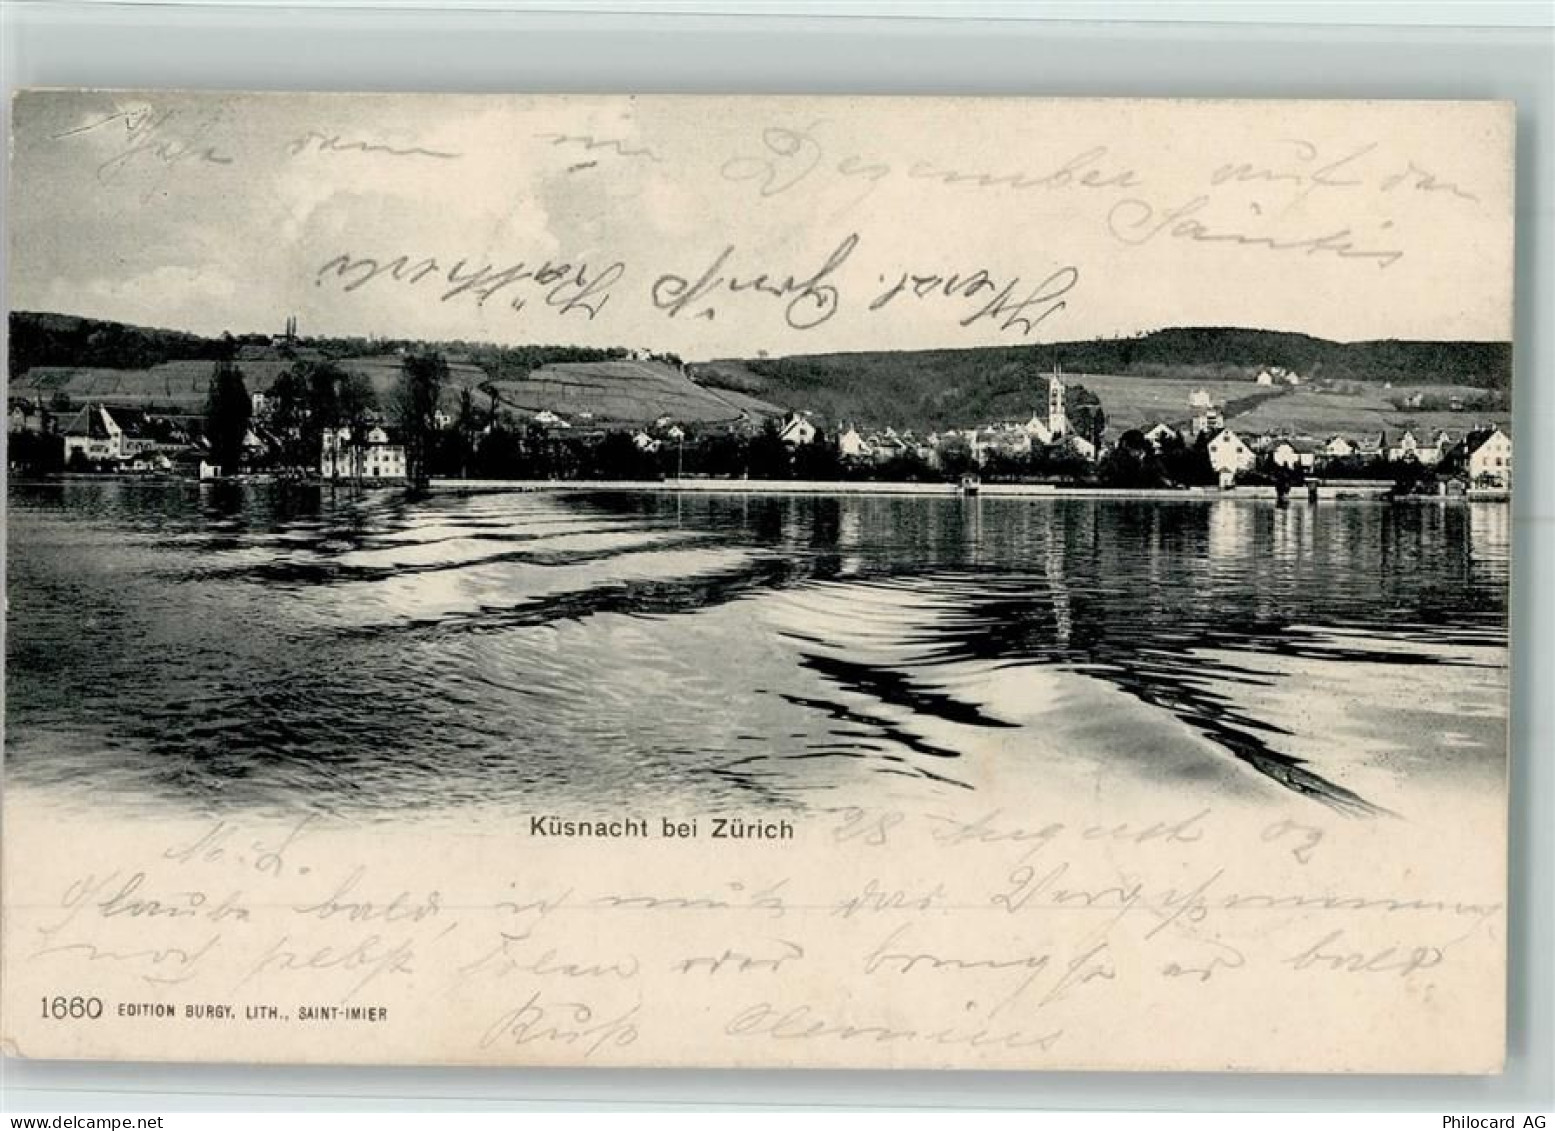 dann im Dezember auf den
Säntis
Herzl. Gruß
Küsnacht bei Zürich
28 August 02
M. L.
Glaube bald, ich muß das Vergißmeinnich
noch selbst holen oder bringst es bald
Gruß Clemens
1660 EDITION BURGY, LITH., SAINT-IMIER
Philocard AG